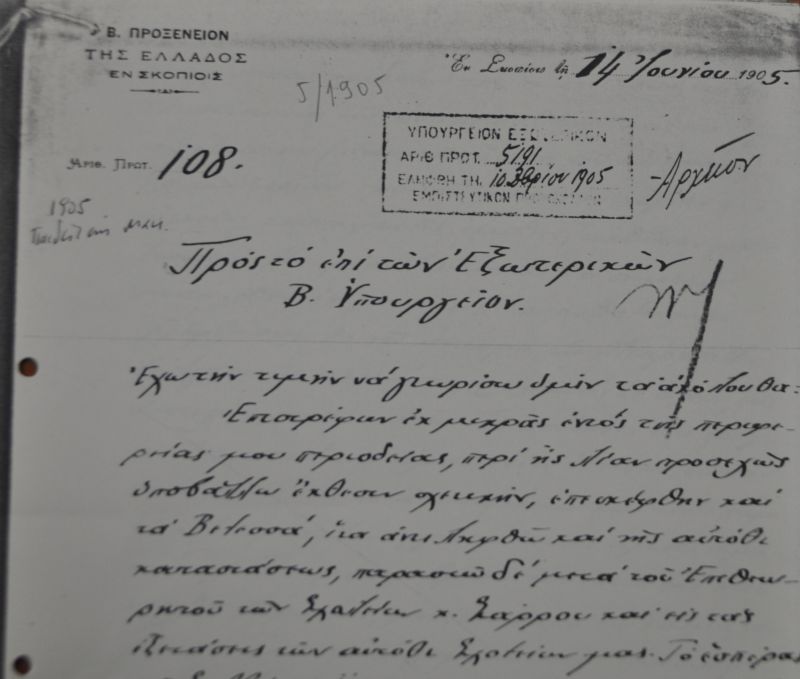 Β. ΠΡΟΞΕΝΕΙΟΝ
ΤΗΣ ΕΛΛΑΔΟΣ
ΕΝ ΣΚΟΠΙΟΙΣ
Ἐν Σκοπίοις τῇ 14 Ἰουνίου 1905.
5/1905
ΥΠΟΥΡΓΕΙΟΝ ΕΞΩΤΕΡΙΚΩΝ
ΑΡΙΘ ΠΡΩΤ. 5191
ΕΛΗΦΘΗ ΤΗ. 10 1905
ΕΜΠΙΣΤΕΥΤΙΚΩΝ
Ἀρχεῖον
Ἀριθ. Πρωτ. 108.
1905
Πρὸς τὸ ἐπὶ τῶν Ἐξωτερικῶν
Β. Ὑπουργεῖον.
Ἔχω τὴν τιμὴν νὰ γνωρίσω ὑμῖν τὰ ἀκόλουθα:
Ἐπιστρέφων ἐκ μικρᾶς ἐντὸς τῆς περιφε-
ρείας μου περιοδείας, περὶ ἧς λίαν προσεχῶς
ὑποβάλλω ἔκθεσιν σχετικήν, ἐπεσκέφθην καὶ
τὰ Βελεσσά, ἵνα ἀντιληφθῶ καὶ τῆς αὐτόθι
καταστάσεως, παραστῶ δὲ μετὰ τοῦ Ἐπιθεω-
ρητοῦ τῶν Σχολείων κ. Σάρρου καὶ εἰς τὰς
ἐξετάσεις τῶν αὐτόθι Σχολείων μας. Τὸ ἑσπέρας